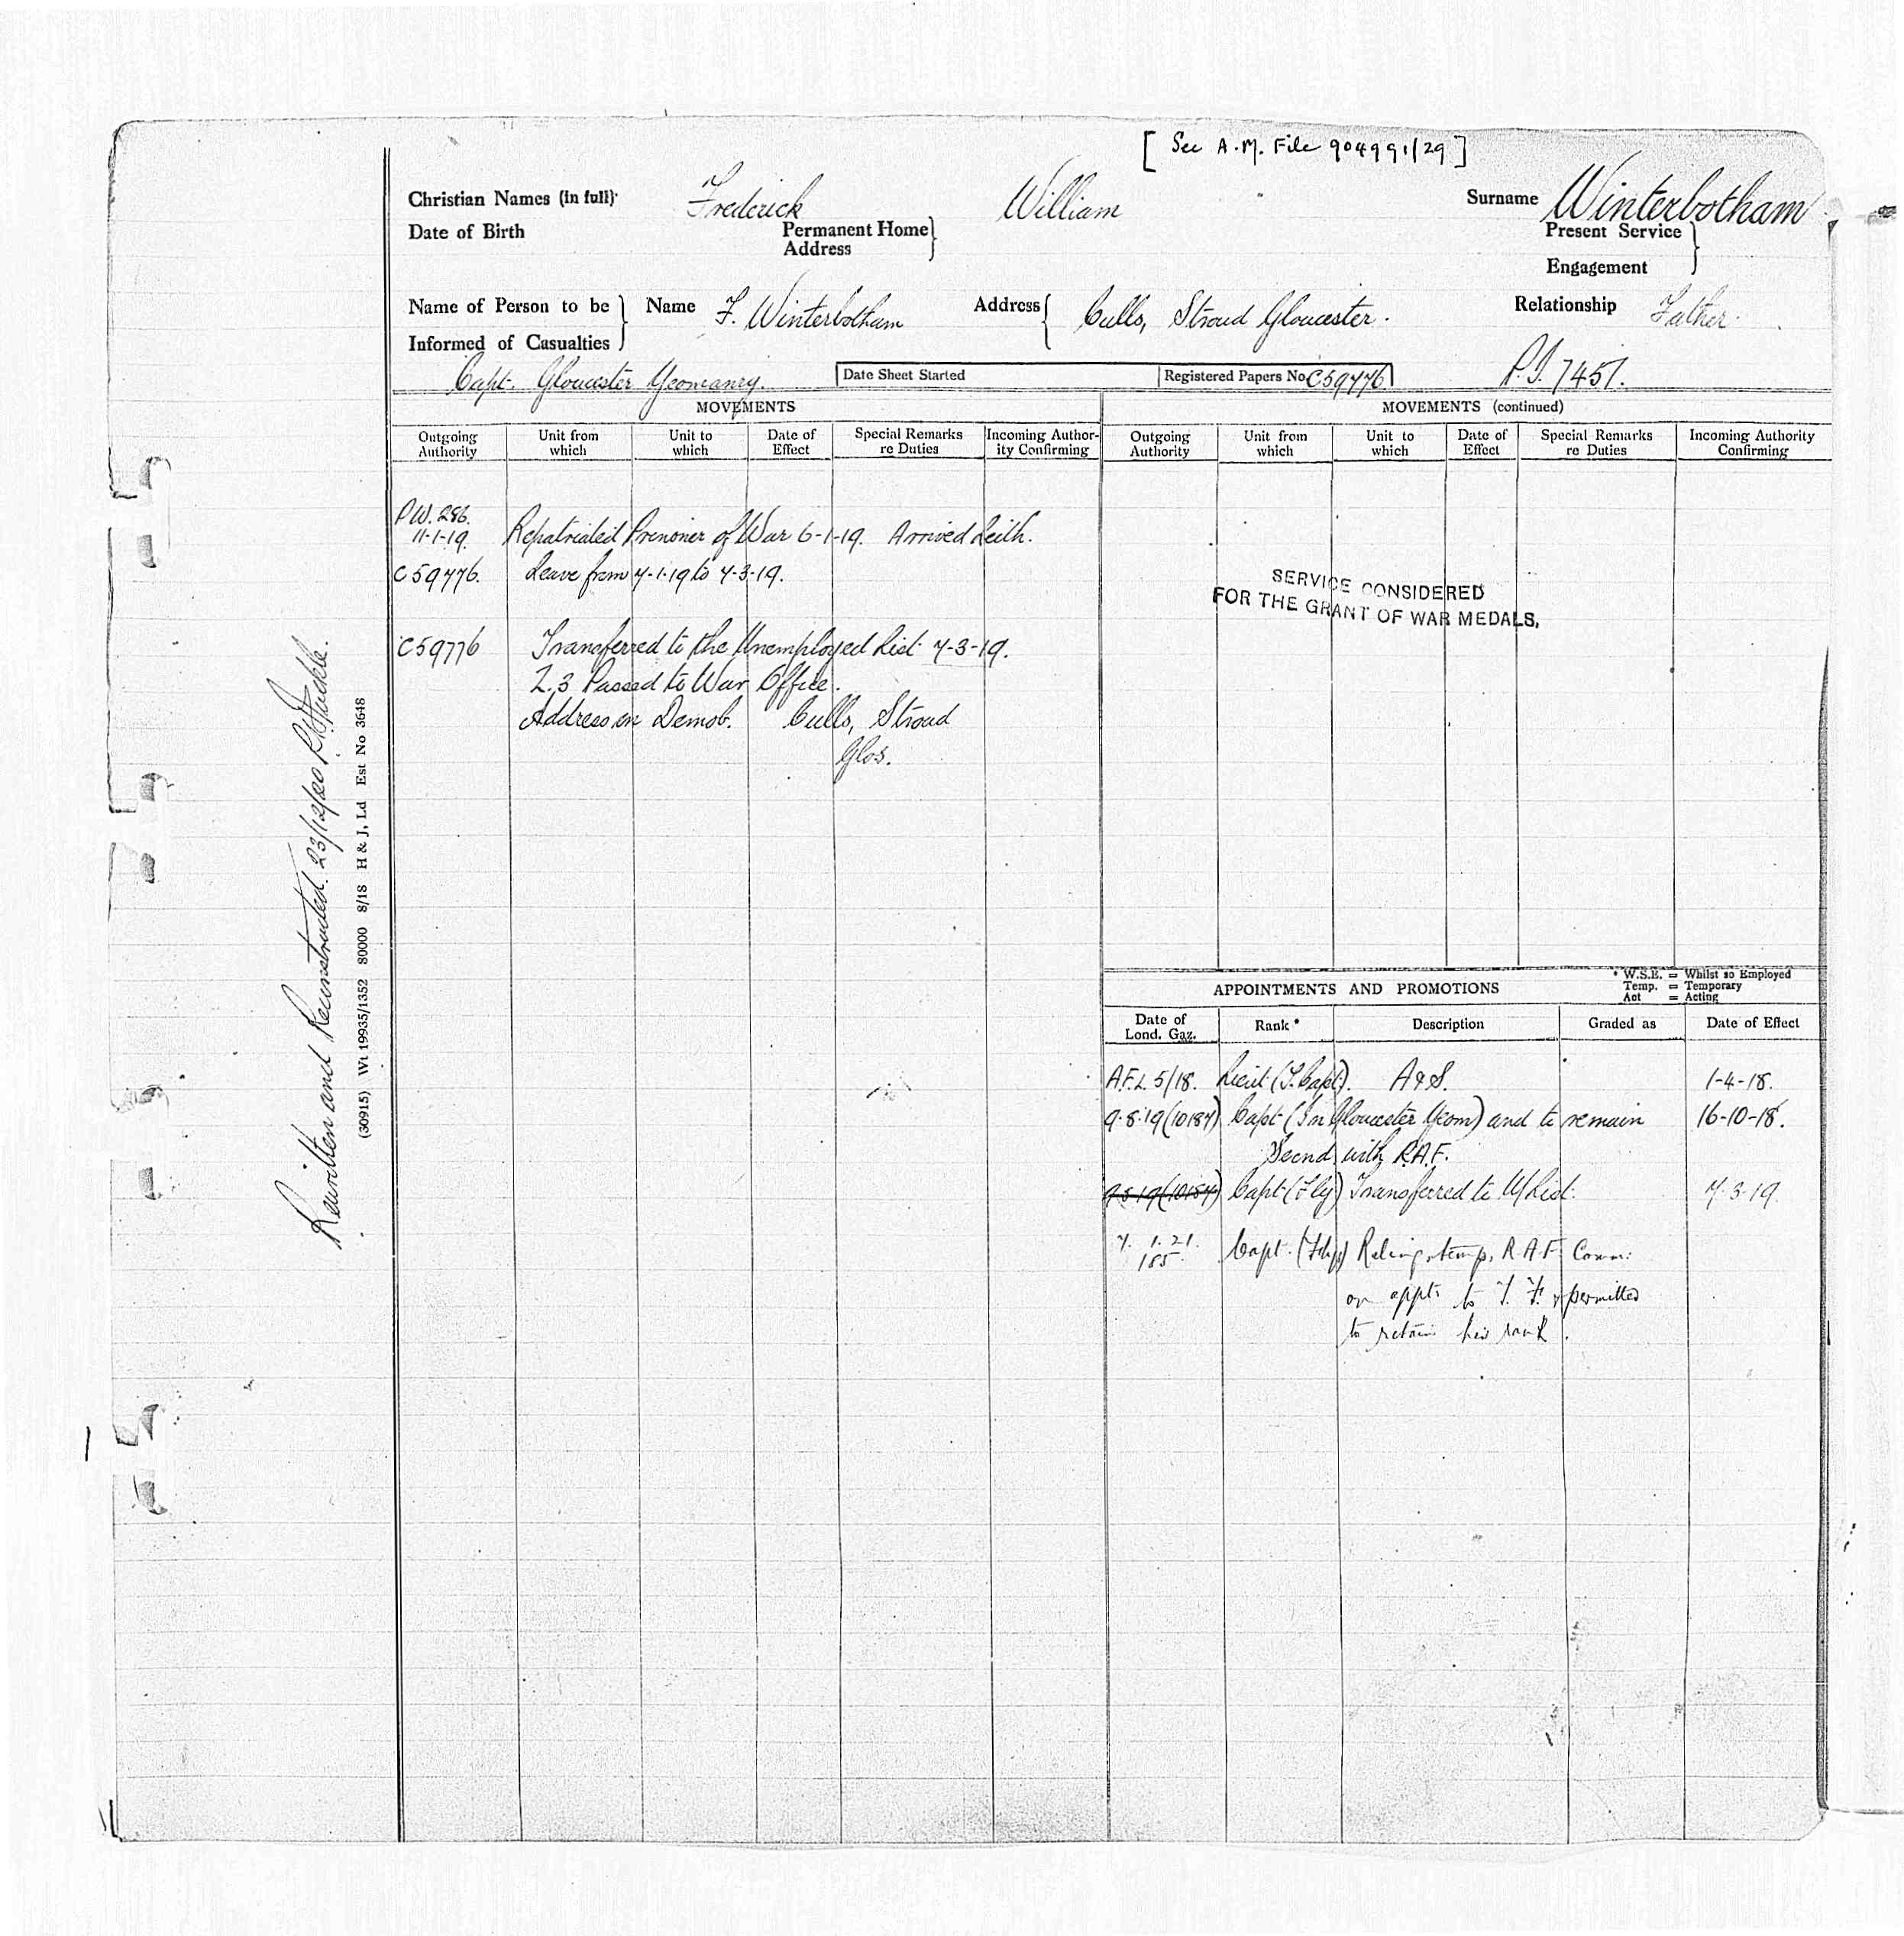 [ See A.M. File 904991/29 ]
Christian Names (in full) Frederick William Surname Winterbotham
Date of Birth Permanent Home Address Present Service
Engagement
Name of Person to be Informed of Casualties Name F. Winterbotham Address Culls, Stroud Gloucester. Relationship Father.
Capt. Gloucester Yeomanry. Date Sheet Started Registered Papers No C59776 P.I. 7451.
MOVEMENTS
Outgoing Authority Unit from which Unit to which Date of Effect Special Remarks re Duties Incoming Authority Confirming
P.W. 286.
11-1-19. Repatriated Prisoner of War 6-1-19. Arrived Leith.
C59776. Leave from 7-1-19 to 7-3-19.
C59776 Transferred to the Unemployed List 7-3-19.
Z.3 Passed to War Office.
Address on Demob. Culls, Stroud
Glos.
MOVEMENTS (continued)
Outgoing Authority Unit from which Unit to which Date of Effect Special Remarks re Duties Incoming Authority Confirming
SERVICE CONSIDERED
FOR THE GRANT OF WAR MEDALS.
APPOINTMENTS AND PROMOTIONS
* W.S.E. = Whilst so Employed
Temp. = Temporary
Act = Acting
Date of Lond. Gaz. Rank * Description Graded as Date of Effect
A.F.L 5/18. Lieut (T. Capt). A & S. 1-4-18.
9.8.19 (10187) Capt (In Gloucester Yeom) and to remain 16-10-18.
Secnd with R.A.F.
9.8.19 (10187) Capt (Fly) Transferred to U/List. 7.3.19.
7. 1. 21.
185. Capt. Relinq. temp. R.A.F. Comm:
on appt. to T. F. & permitted
to retain his rank.
Rewritten and Reconstructed. 23/12/20
(30915) Wt 19935/1352 80000 8/18 H & J, Ld Est No 3648